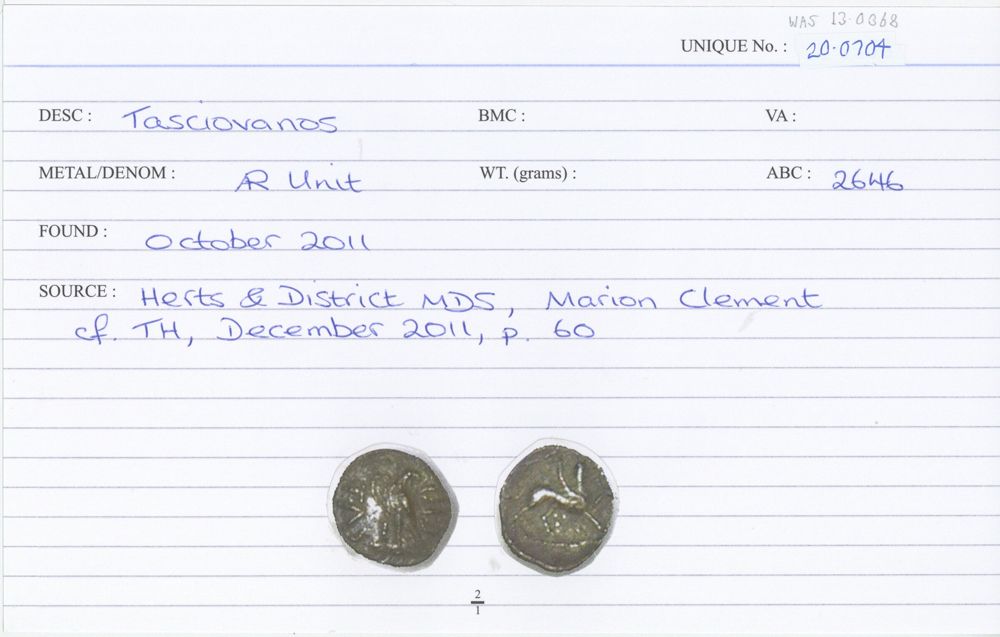 WAS 13.0868
UNIQUE No. : 20.0704
DESC : Tasciovanos BMC : VA :
METAL/DENOM : AR Unit WT. (grams) : ABC : 2646
FOUND : October 2011
SOURCE : Herts & District MDS, Marion Clement
cf. TH, December 2011, p. 60
2
1